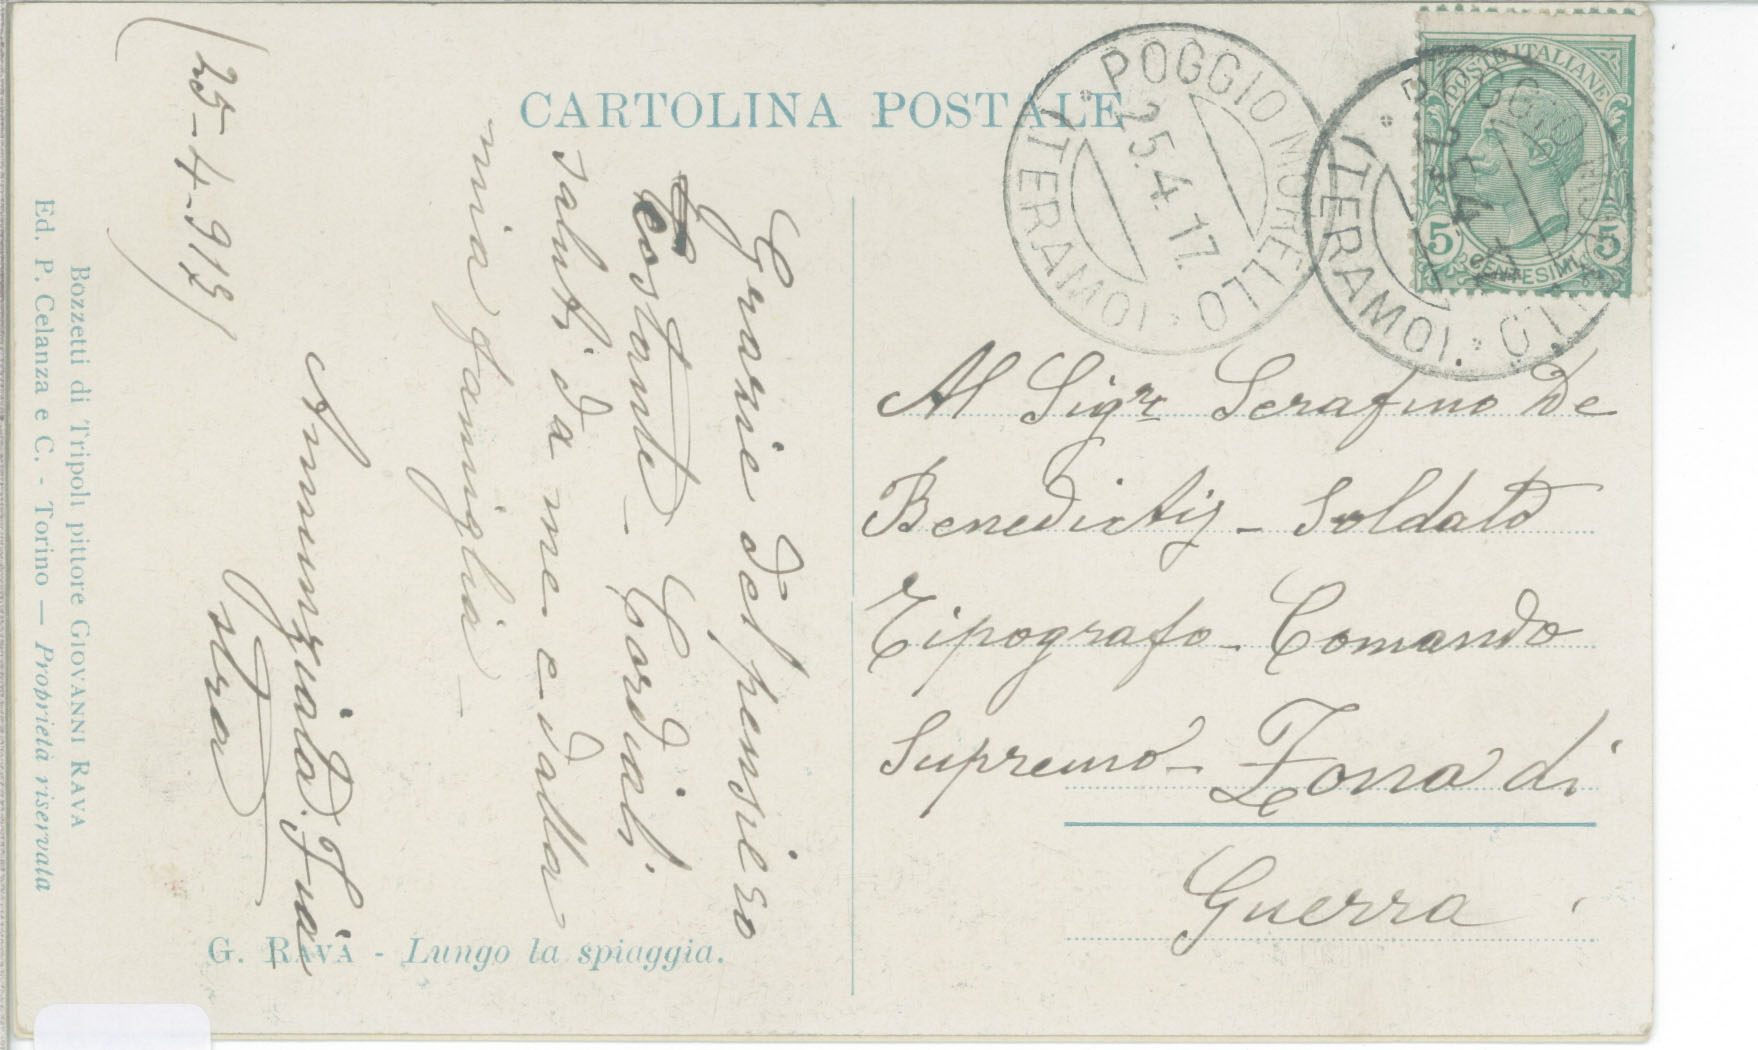 CARTOLINA POSTALE
POGGIO MORELLO
(TERAMO)
25.4.17.
POSTE ITALIANE
5 CENTESIMI 5
(TERAMO)
25.4.17
Al Sigre Serafino De
Benedictis - Soldato
Tipografo - Comando
Supremo - Zona di
Guerra
Grazie del pensiero
costante - Cordiali
saluti da me e dalla
mia famiglia -
Annunziata
stra
25-4-917
G. RAVA - Lungo la spiaggia.
Bozzetti di Tripoli pittore GIOVANNI RAVA
Ed. P. Celanza e C. - Torino — Proprietà riservata